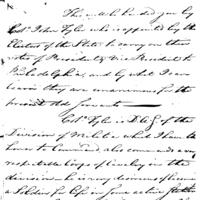 This will be handed you by
Col. John Tyler who is appointed by the
Electors of this State to carry on their
votes of President & Vice President to
Philadelphia, and by what I can
learn they are unanimous for the
present old servants
Col. Tyler is D. A. G. of the
Division of Militia which I have the
honor to Command, also commands a very
respectable Corps of Cavalry in the
division he is very desirous of being
a Soldier for life in some active